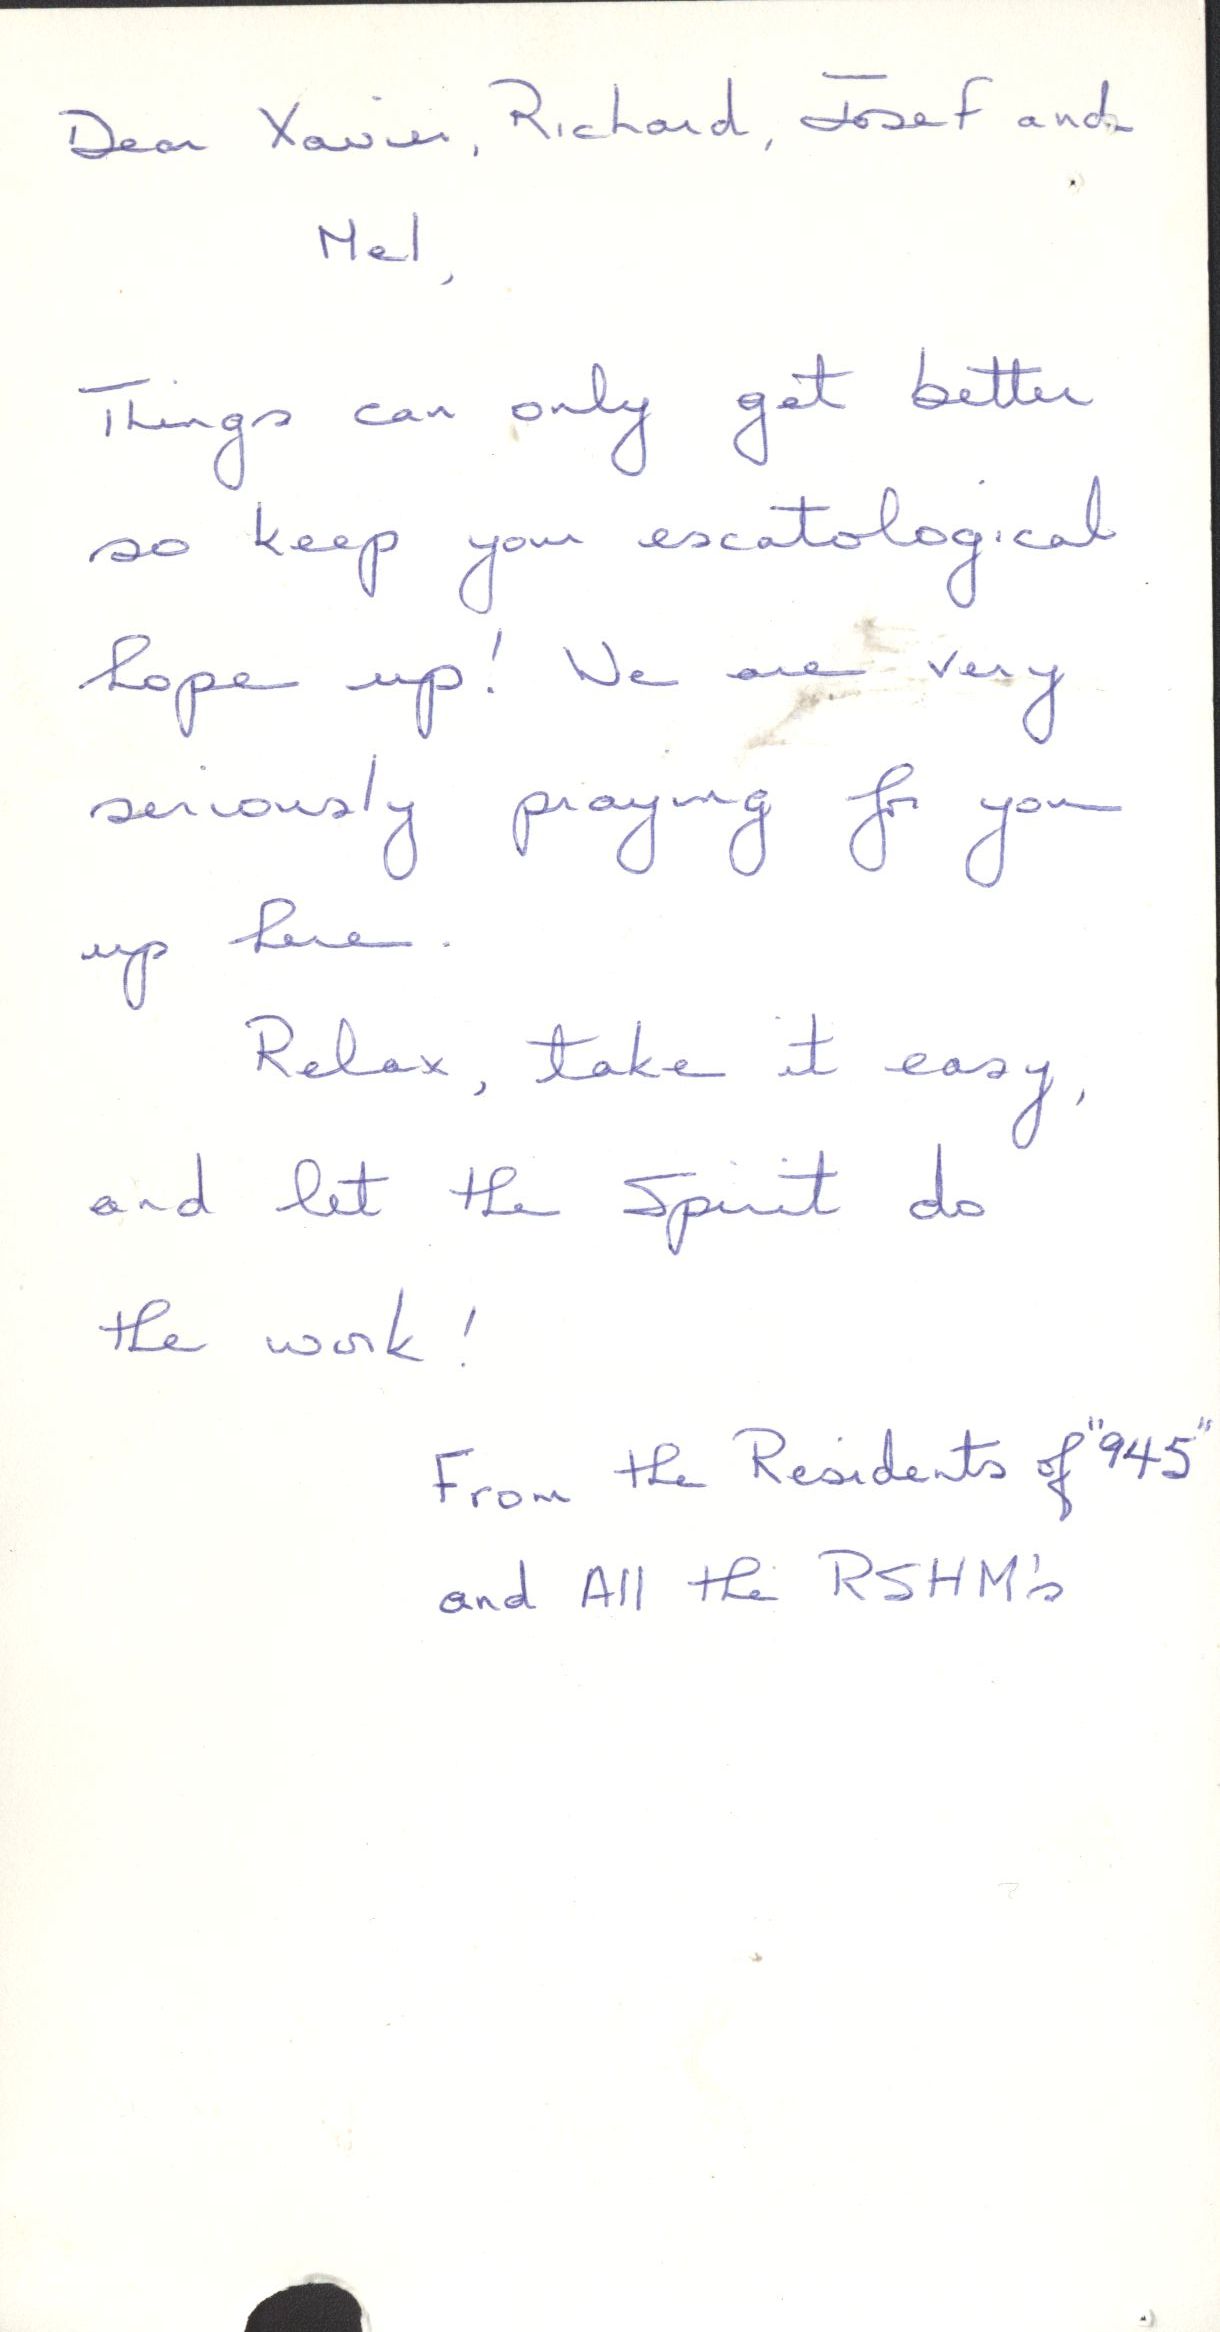 Dear Xavier, Richard, Josef and
Mel,
Things can only get better
so keep your escatological
hope up! We are very
seriously praying for you
up here.
Relax, take it easy,
and let the Spirit do
the work!
From the Residents of "945"
and All the RSHM's